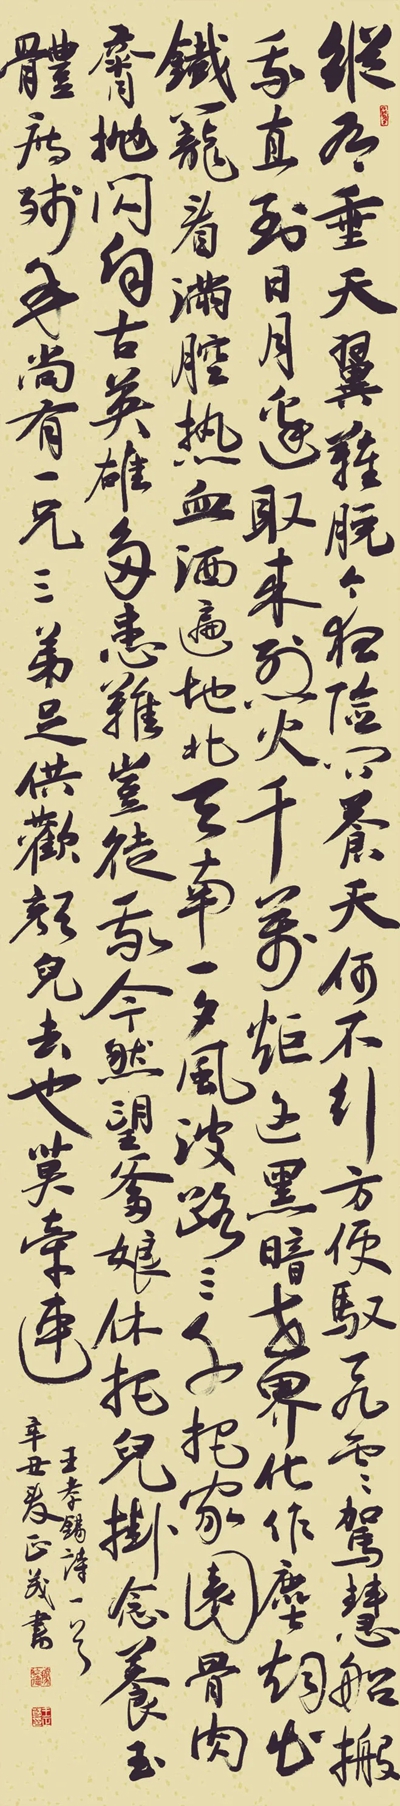 縱有垂天翼難脫今夜險問蒼天何不行方便馭飛雲駕慧船搬
我直到日月邊取來烈火千萬炬這黑暗世界化作塵烟出
鐵籠看滿腔热血洒遍地北天南一夕風波路三千把家園骨肉
齊抛閃自古英雄多患難豈徒我今然望爹娘休把兒掛念養玉
體度殘年尚有一兄三弟足供歡顏兒去也莫牽連
王孝錫詩一首
辛丑夏正茂書